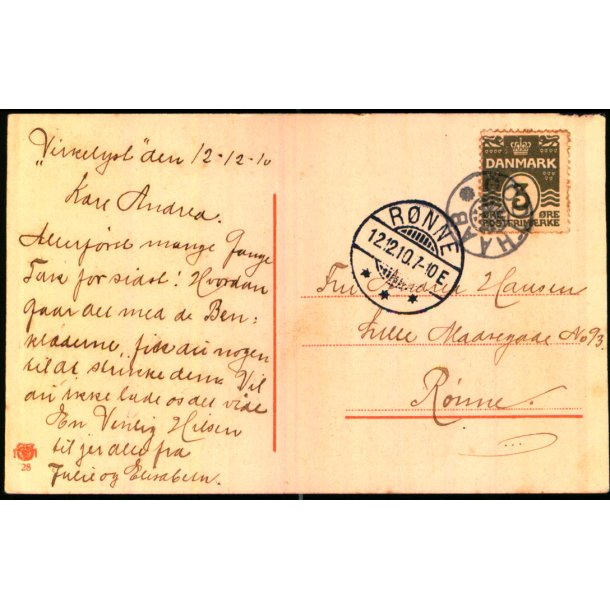 "Virkelyst" den 12-12-10
Kære Andrea.
Allerførst mange Gange
Tak for sidst! Hvordan
gaar det med de Ben-
klæderne, fik du nogen
til at strikke dem. Vil
du ikke lade os det vide
En Venlig Hilsen
til jer alle fra
Julie og Elisabeth.
28
DANMARK
3
ØRE ØRE
POSTFRIMÆRKE
HAAB
RØNNE
12.12.10.7-10E
Fru Andrea Hansen
Lille Madsegade No 93.
Rønne.